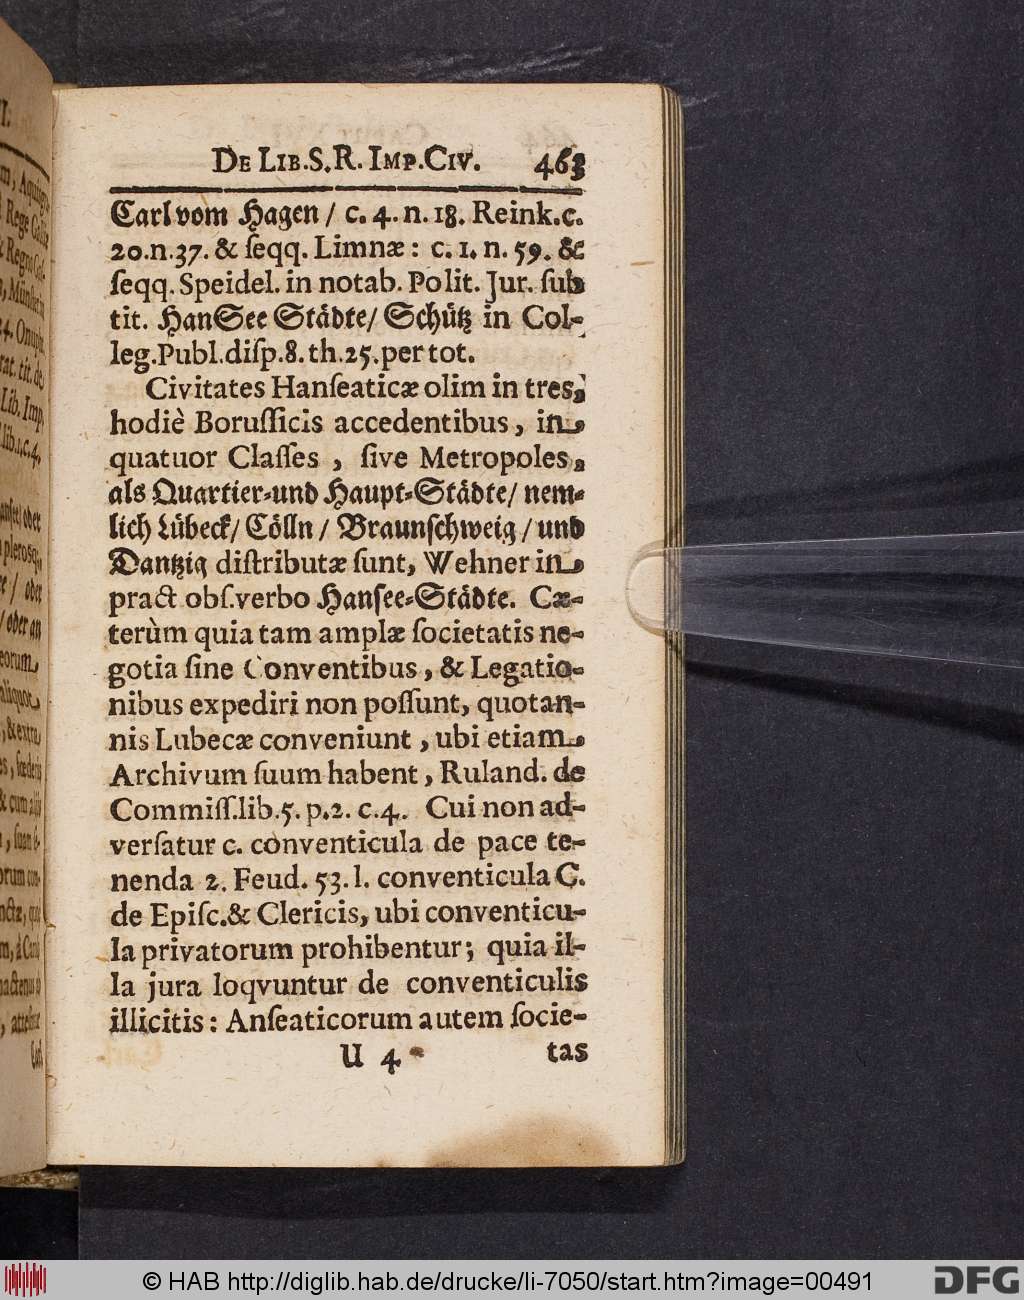 DE LIB. S. R. IMP. CIV. 463
Carl vom Hagen / c. 4. n. 18. Reink. c.
20. n. 37. & ſeqq. Limnæ: c. 1. n. 59. &
ſeqq. Speidel. in notab. Polit. Jur. ſub
tit. HanSee Städte/ Schütz in Col-
leg. Publ. diſp. 8. th. 25. per tot.
Civitates Hanſeaticæ olim in tres,
hodiè Boruſſicis accedentibus, in
quatuor Claſſes, ſive Metropoles,
als Quartier-und Haupt-Städte/ nem-
lich Lübeck/ Cölln / Braunſchweig / und
Dantzig diſtributæ ſunt, Wehner in
pract obſ. verbo Hanſee-Städte. Cæ-
terùm quia tam amplæ ſocietatis ne-
gotia ſine Conventibus, & Legatio-
nibus expediri non poſſunt, quotan-
nis Lubecæ conveniunt, ubi etiam
Archivum ſuum habent, Ruland. de
Commiſſ. lib. 5. p. 2. c. 4. Cui non ad-
verſatur c. conventicula de pace te-
nenda 2. Feud. 53. l. conventicula C.
de Epiſc. & Clericis, ubi conventicu-
la privatorum prohibentur; quia il-
la jura loqvuntur de conventiculis
illicitis: Anſeaticorum autem ſocie-
U 4 tas
© HAB http://diglib.hab.de/drucke/li-7050/start.htm?image=00491
DFG